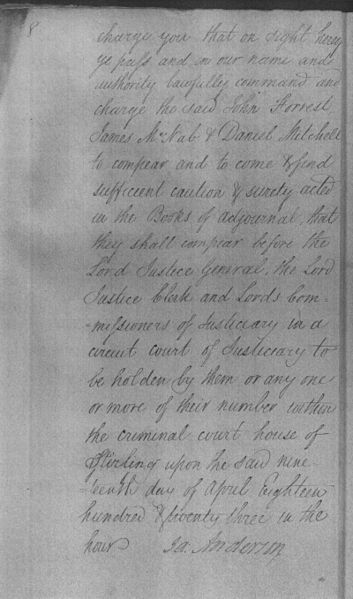 8
charge you that on sight hereof
ye pass and in our name and
authority lawfully command and
charge the said John Forrest
James McNab & Daniel Mitchell
to compear and to come & find
sufficient caution & surety acted
in the Books of adjournal, that
they shall compear before the
Lord Justice General, the Lord
Justice Clerk and Lords Com-
-missioners of Justiciary in a
circuit court of Justiciary to
be holden by them or any one
or more of their number within
the criminal court house of
Stirling upon the said nine
teenth day of April Eighteen
hundred & twenty three in the
hour Ja. Anderson